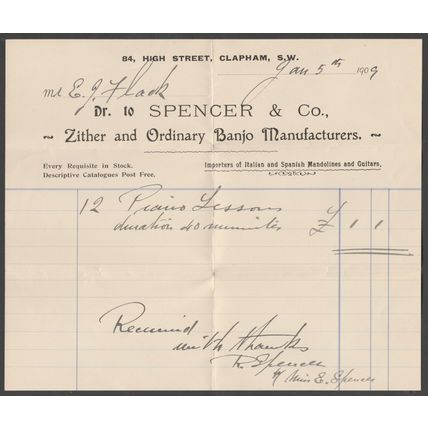 84, HIGH STREET, CLAPHAM, S.W.
Jan 5th 1909
Mr E. J. Flack
Dr. to SPENCER & Co.,
~ Zither and Ordinary Banjo Manufacturers. ~
Every Requisite in Stock.
Descriptive Catalogues Post Free.
Importers of Italian and Spanish Mandolines and Guitars,
12 Piano Lessons
duration 40 minutes £ 1 1
Received
with thanks
R. Spencer
Miss E. Spencer